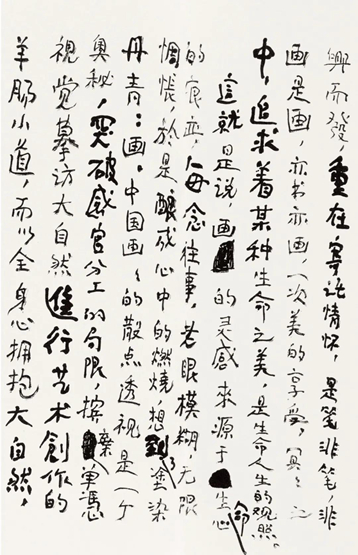 興而發，重在寄託情怀，是笔非笔，非
画是画，亦书亦画，一次美的享受，冥々之
中，追求着某种生命之美，是生命人生的观照。
这就是说，画的灵感来源于生命
的痕迹，每念往事，若眼模糊，无限
惆怅，於是酿成心中的燃燒，想到了塗染
丹青：画，中国画々的散点透視是一个
奥秘，突破感官分工的局限，摈棄单憑
視觉摹访大自然進行艺术創作的
羊肠小道，而以全身心拥抱大自然，